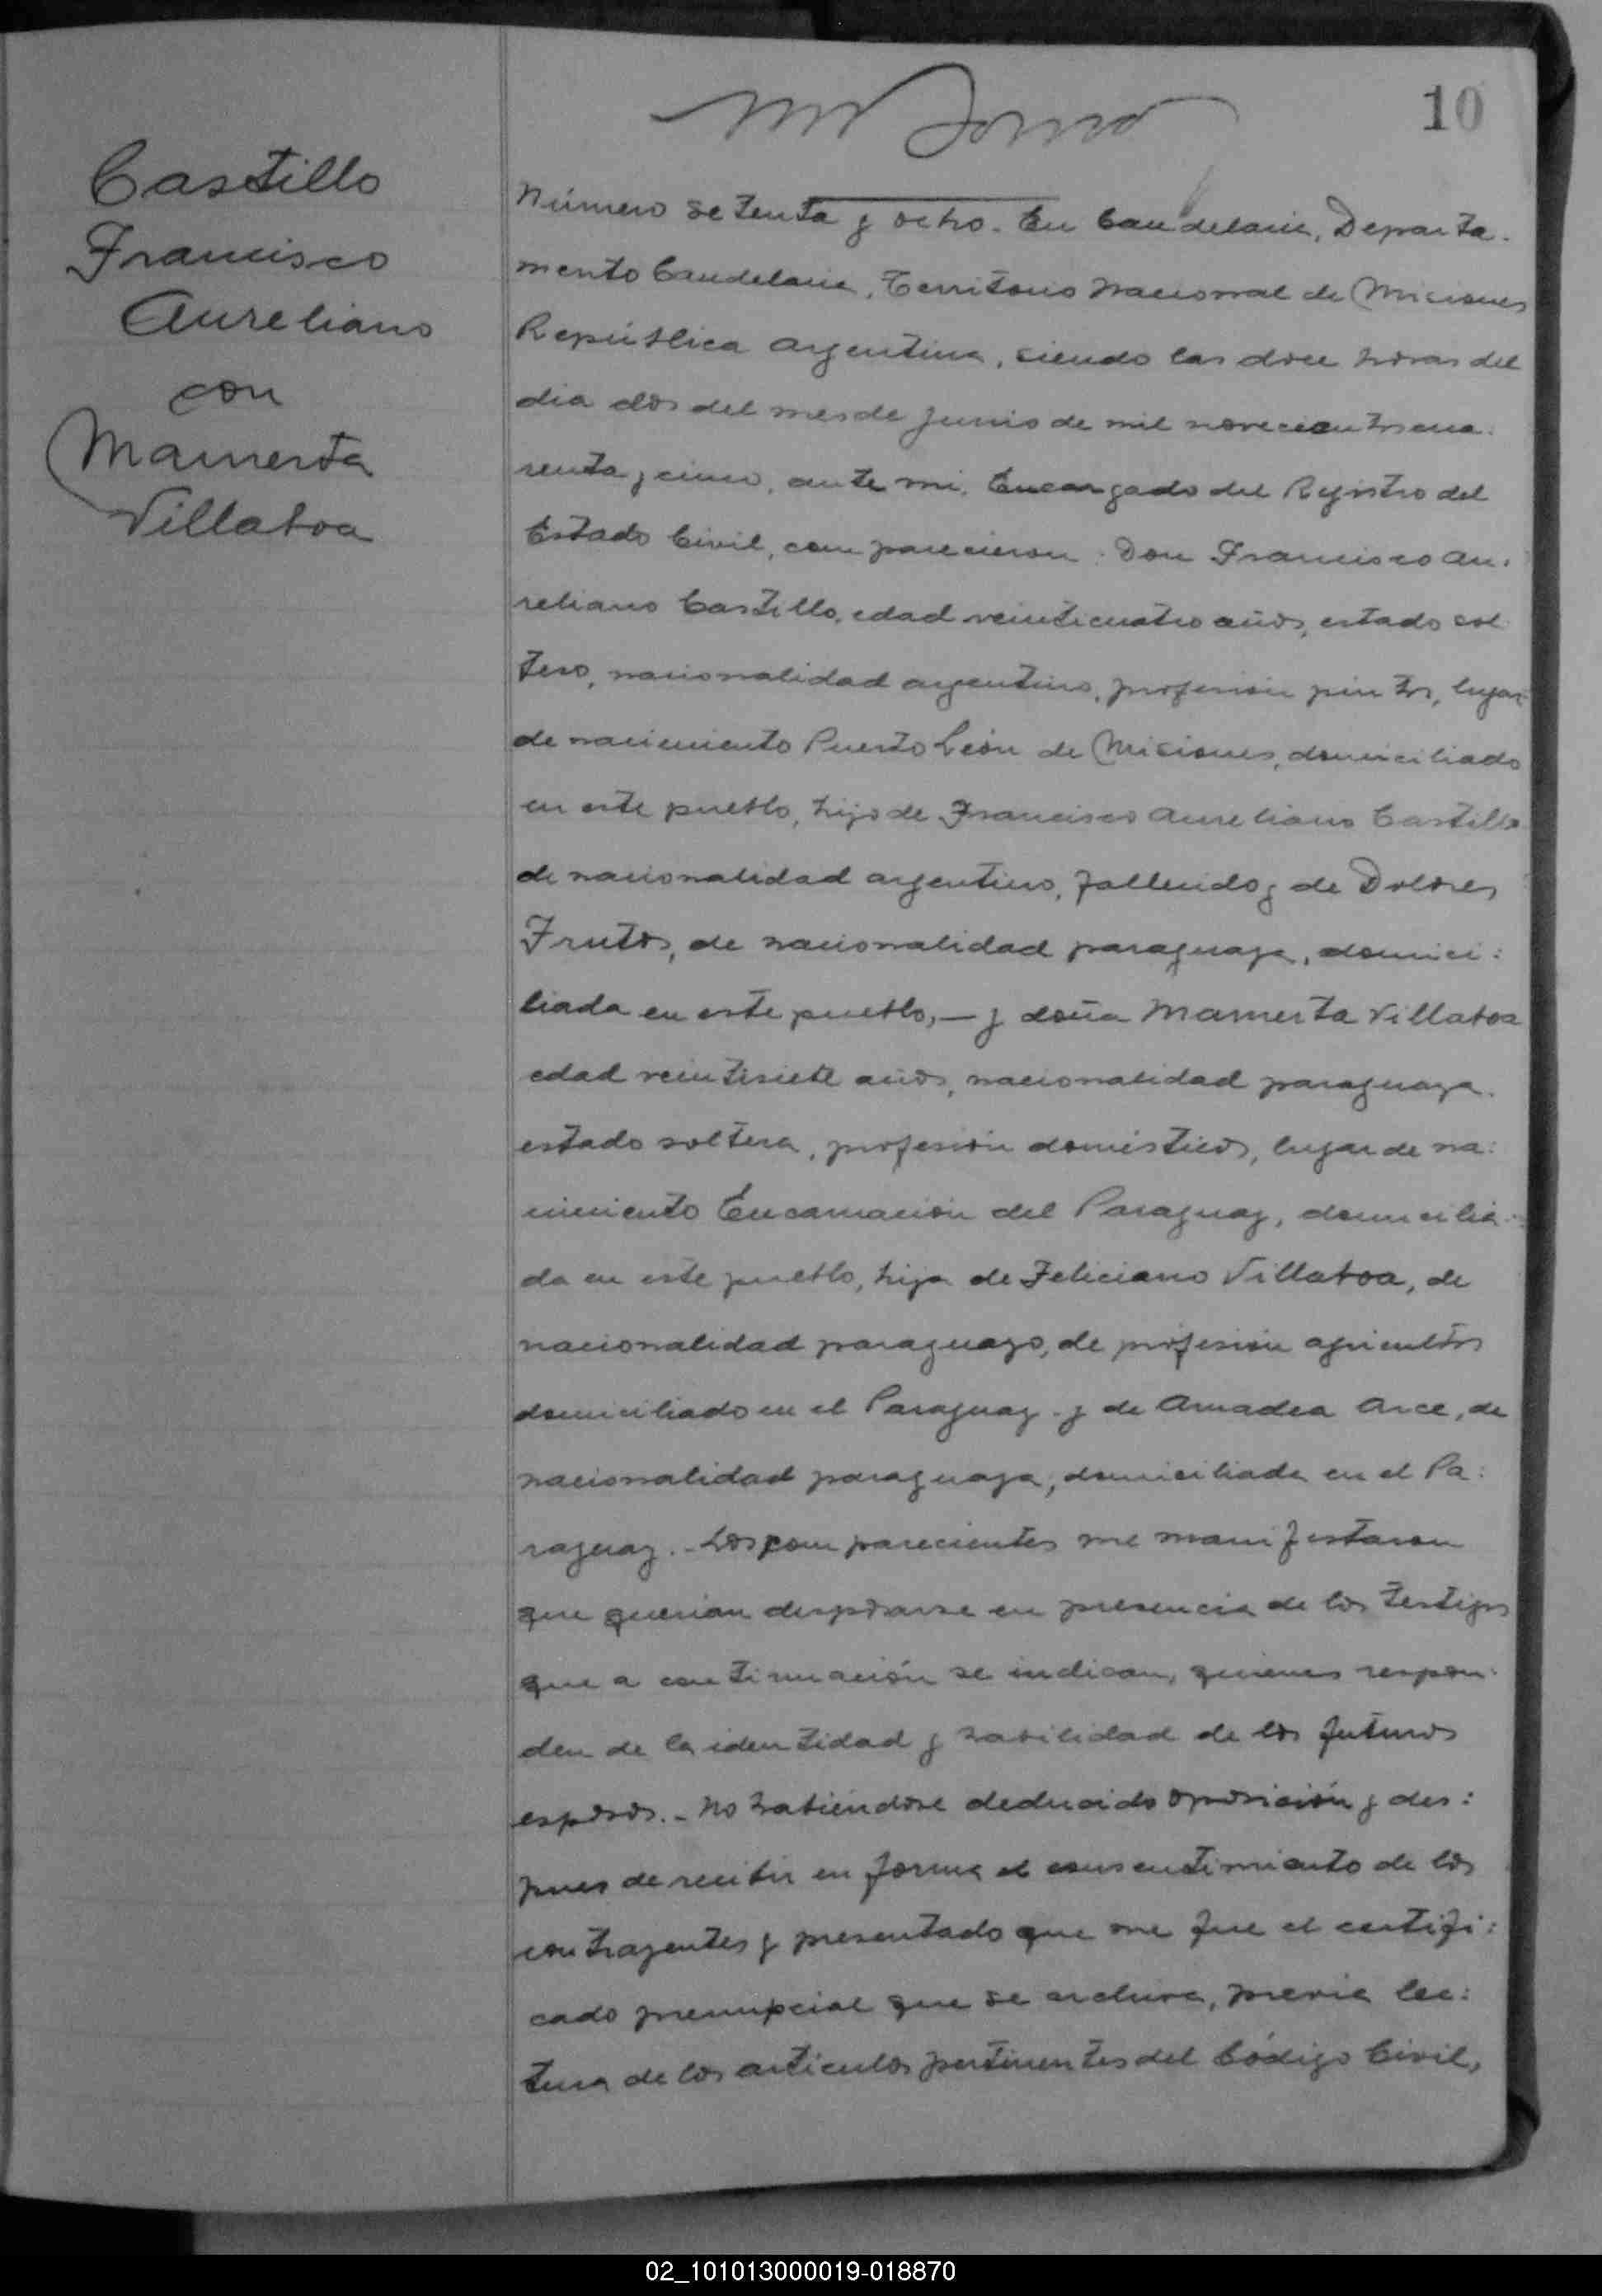 10
Castillo
Francisco
Aureliano
con
Mamerta
Villaboa
Número setenta y ocho. En Candelaria, Departa-
mento Candelaria, Territorio Nacional de Misiones
República Argentina, siendo las doce horas del
dia dos del mes de Junio de mil novecientos cua-
renta y cinco, ante mi, Encargado del Registro del
Estado Civil, comparecieron: Don Francisco Au-
reliano Castillo, edad veinticuatro años, estado sol
tero, nacionalidad argentino, profesión pintor, lugar
de nacimiento Puerto León de Misiones, domiciliado
en este pueblo, hijo de Francisco Aureliano Castillo
de nacionalidad argentino, fallecido y de Dolores
Frutos, de nacionalidad paraguaya, domici:
liada en este pueblo, — y doña Mamerta Villaboa
edad veintisiete años, nacionalidad paraguaya.
estado soltera, profesión domésticos, lugar de na:
cimiento Encarnación del Paraguay, domicilia-
da en este pueblo, hija de Feliciano Villaboa, de
nacionalidad paraguayo, de profesión agricultor
domiciliado en el Paraguay - y de Amadea Arce, de
nacionalidad paraguaya, domiciliada en el Pa:
raguay. - Los comparecientes me manifestaron
que querian desposarse en presencia de los testigos
que a continuación se indican, quienes respon-
den de la identidad y habilidad de los futuros
esposos. - No habiéndose deducido oposición y des:
pues de recibir en forma el consentimiento de los
contrayentes y presentado que me fue el certifi:
cado prenupcial que se archiva, previa lec:
tura de los articulos pertinentes del Código Civil,
02_101013000019-018870